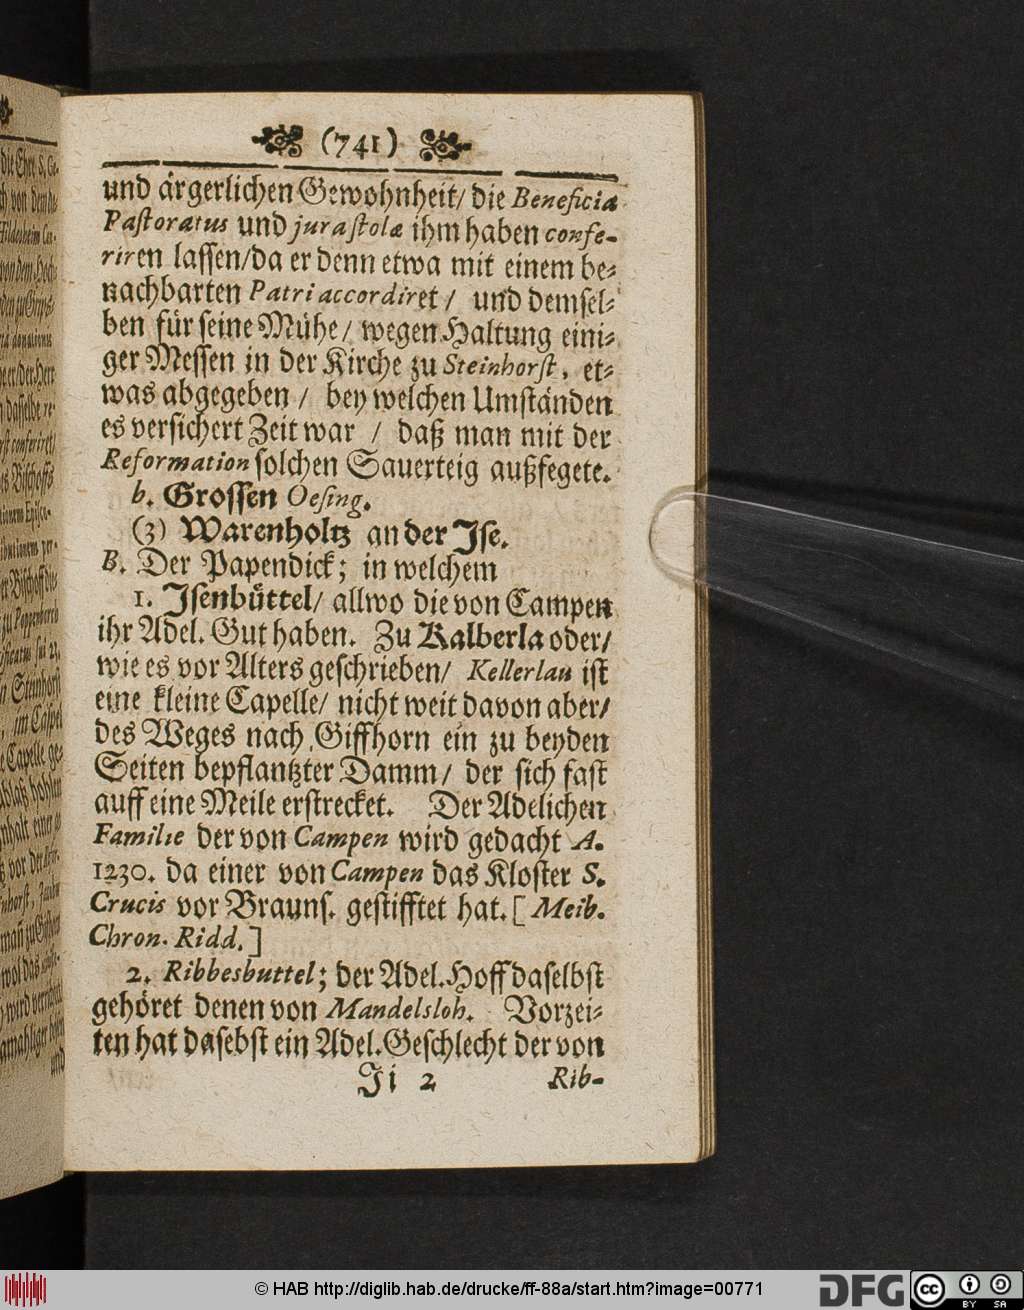 (741)
und ärgerlichen Gewohnheit/ die Beneficia
Pastoratus und jura stolæ ihm haben confe-
riren lassen/ da er denn etwa mit einem be-
nachbarten Patri accordiret / und demsel-
ben für seine Mühe/ wegen Haltung eini-
ger Messen in der Kirche zu Steinhorst, et-
was abgegeben / bey welchen Umständen
es versichert Zeit war / daß man mit der
Reformation solchen Sauerteig außfegete.
b. Grossen Oesing.
(3) Warenholtz an der Ise.
B. Der Papendick; in welchem
1. Isenbüttel/ allwo die von Campen
ihr Adel. Gut haben. Zu Kalberla oder/
wie es vor Alters geschrieben/ Kellerlau ist
eine kleine Capelle/ nicht weit davon aber/
des Weges nach Giffhorn ein zu beyden
Seiten bepflantzter Damm/ der sich fast
auff eine Meile erstrecket. Der Adelichen
Familie der von Campen wird gedacht A.
1230. da einer von Campen das Kloster S.
Crucis vor Brauns. gestifftet hat. [ Meib.
Chron. Ridd. ]
2. Ribbesbuttel; der Adel. Hoff daselbst
gehöret denen von Mandelsloh. Vorzei-
ten hat dasebst ein Adel. Geschlecht der von
Ii 2 Rib-
© HAB http://diglib.hab.de/drucke/ff-88a/start.htm?image=00771
DFG
cc BY SA